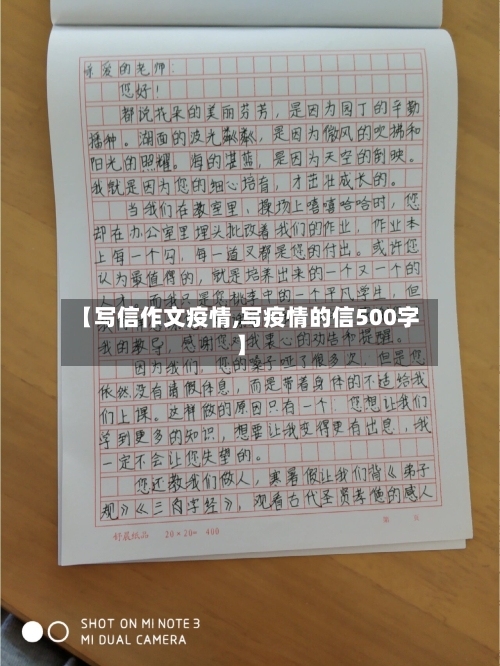 亲爱的老师:
您好!
都说花朵的美丽芬芳,是因为园丁的辛勤
播种。湖面的波光粼粼,是因为微风的吹拂和
阳光的照耀。海的湛蓝,是因为天空的倒映。
我就是因为您的细心培育,才茁壮成长的。
当我们在教室里、操场上嘻嘻哈哈时,您
却在办公室里埋头批改着我们的作业,作业本
上每一个勾,每一道叉都是您的付出。或许您
认为最值得的,就是培养出来的一个又一个的
人才,而我只是您桃李中的一个平凡学生,但
【写信作文疫情,写疫情的信500字
】
我的教导,感谢您对我果心的劝告和提醒。
因为我们,您的嗓子哑了很多次,但是您
依然没有请假休息,而是带着身体的不适给我
们上课。这样做的原因只有一个:您想让我们
学到更多的知识,想要让我变得更有出息,我
一定不会让您失望的。
您还教我们做人,寒暑假让我们背《弟子
规》《三字经》,观看古代圣贤孝德的感人
舒晨纸品 20×20=400 第 页
SHOT ON MI NOTE 3
MI DUAL CAMERA